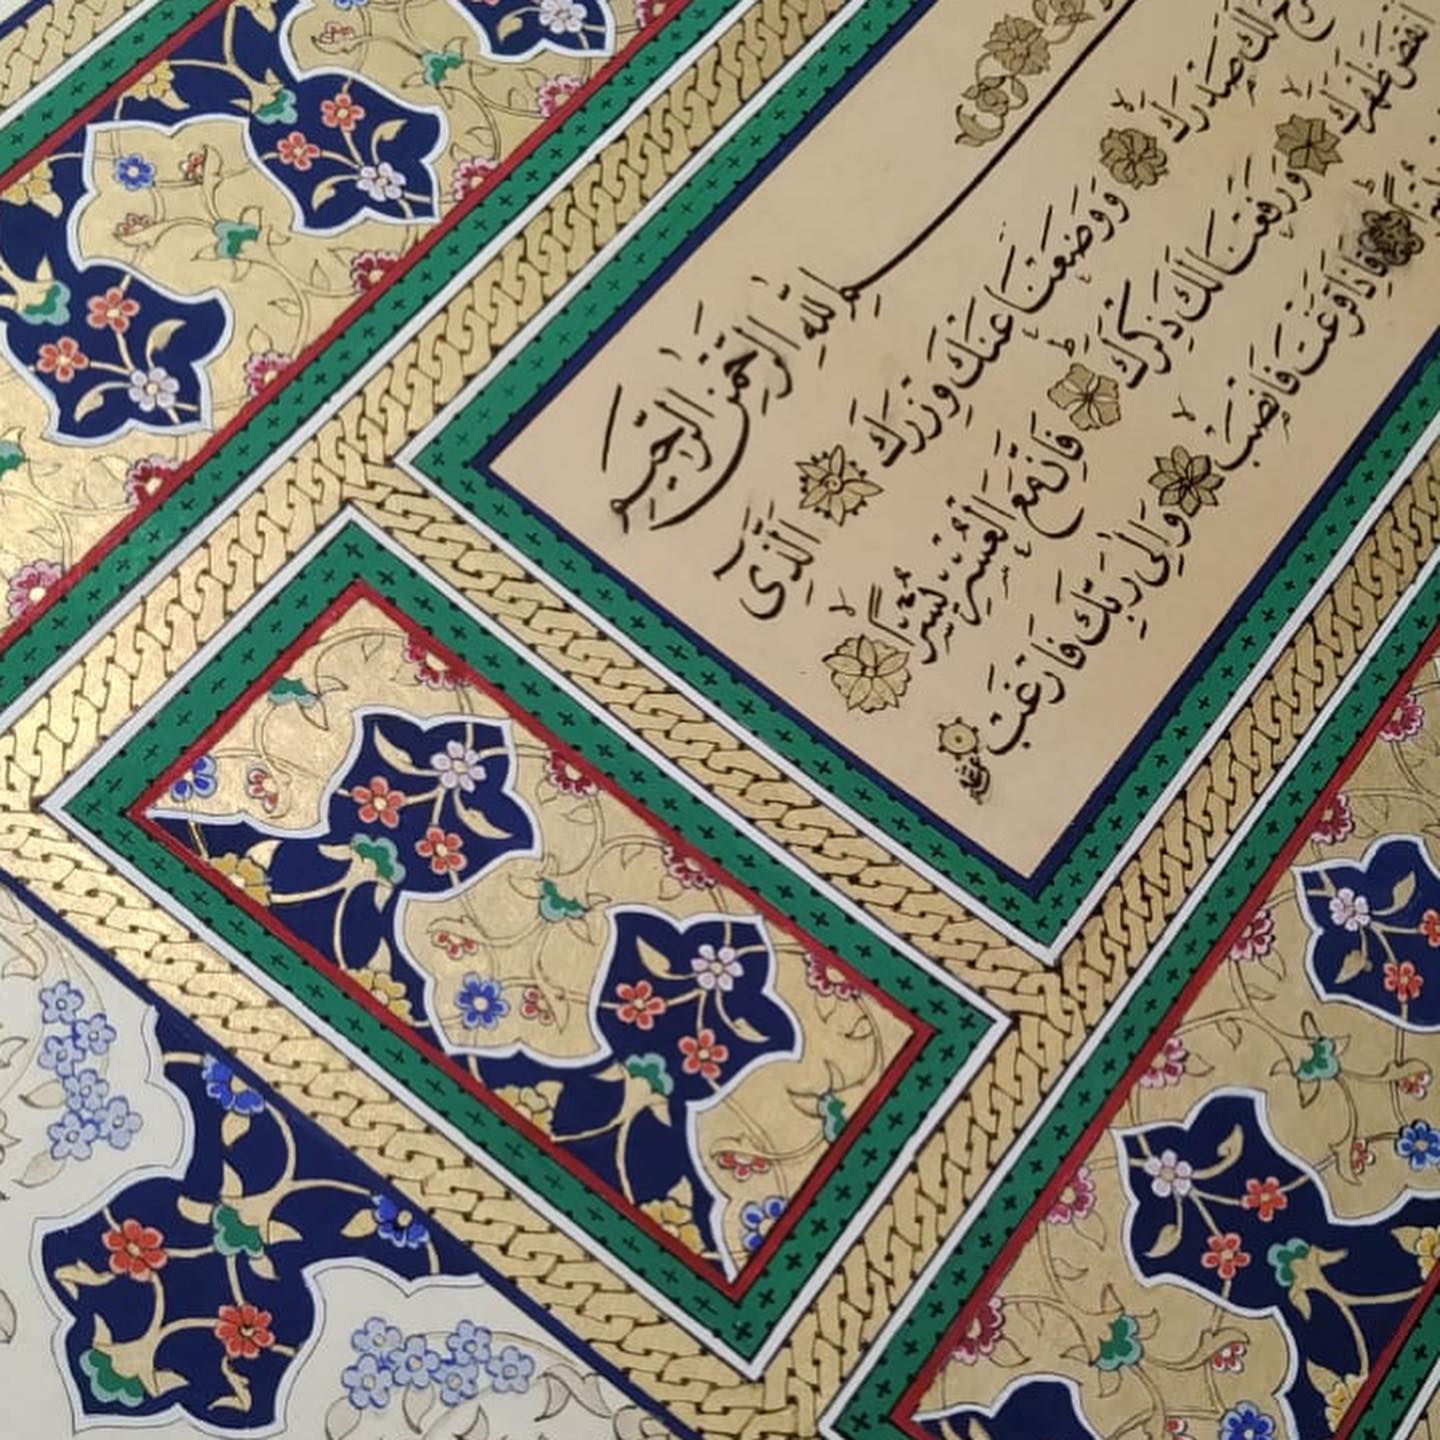 اللهِ الرَّحْمٰنِ الرَّحِيمِ
لَكَ صَدْرَكَ وَوَضَعْنَا عَنْكَ وِزْرَكَ الَّذِي
اَنْقَضَ ظَهْرَكَ وَرَفَعْنَا لَكَ ذِكْرَكَ فَاِنَّ مَعَ الْعُسْرِ يُسْرًا
يُسْرًا فَاِذَا فَرَغْتَ فَانْصَبْ وَاِلٰى رَبِّكَ فَارْغَبْ